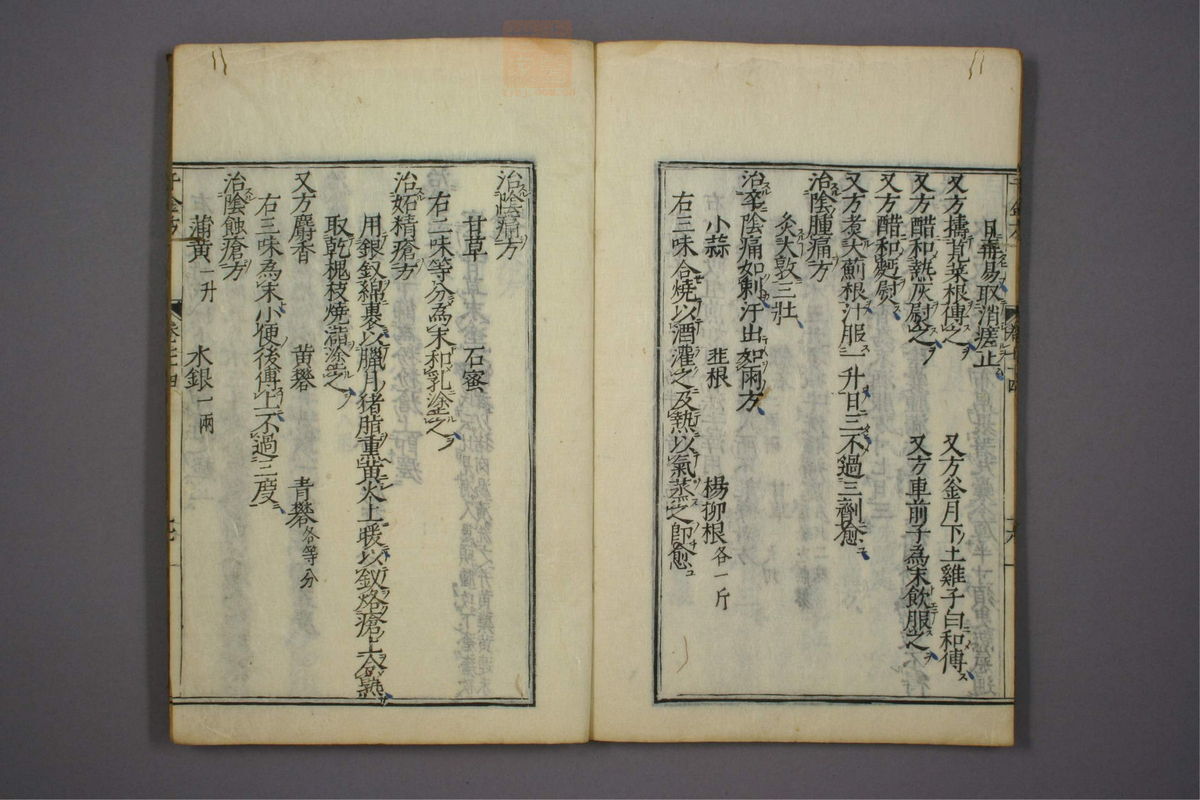 日再易取消瘥止
又方擣莧菜根傅之　又方釜月下土雞子白和傅
又方醋和熱灰熨之　又方車前子為末飲服之
又方醋和麪熨之
又方煮大薊根汁服一升日三不過三劑愈
治陰腫痛方
灸大敦三壯
治卒陰痛如刺汗出如雨方
小蒜　韭根　楊柳根各一斤
右三味合燒以酒灌之及熱以氣蒸之即愈
治陰痛方
甘草　石蜜
右二味等分為末和乳塗之
治妬精瘡方
用銀釵綿裹以臘月猪脂熏黃火上暖以釵烙瘡上令熟
取乾槐枝燒塗之
又方麝香　黃礬　青礬各等分
右三味為末小便後傅上不過三度
治陰蝕瘡方
蒲黃一升　水銀一兩